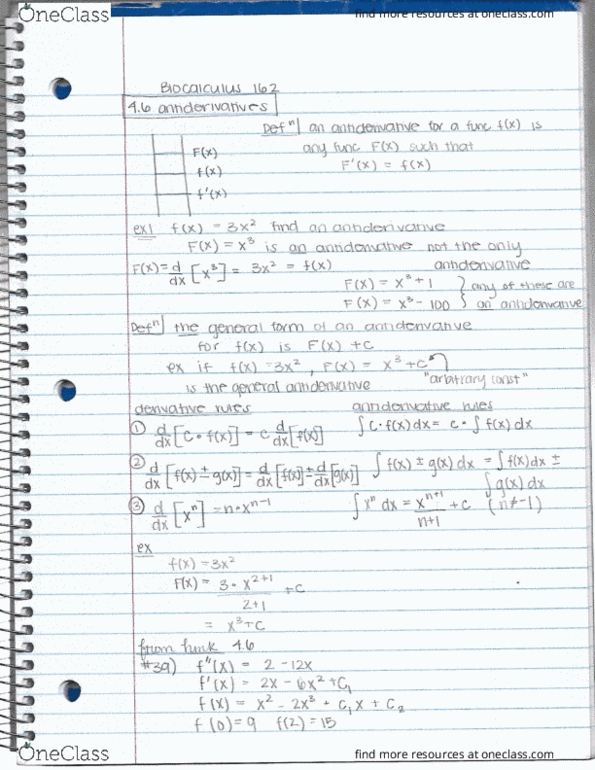 OneClass
find more resources at oneclass.com
Biocalculus 162
4.6 antiderivatives
Defⁿ| an antiderivative for a func f(x) is
any func F(x) such that
F'(x) = f(x)
F(x)
f(x)
f'(x)
ex1 f(x) = 3x² find an antiderivative
F(x) = x³ is an antiderivative not the only
antiderivative
F(x) = d/dx [x³] = 3x² = f(x)
F(x) = x³ + 1 } any of these are
F(x) = x³ - 100 } an antiderivative
Defⁿ| the general form of an antiderivative
for f(x) is F(x) + c
ex if f(x) = 3x², F(x) = x³ + c
is the general antiderivative "arbitrary const"
derivative rules antiderivative rules
① d/dx [c · f(x)] = c d/dx [f(x)] ∫ c · f(x) dx = c · ∫ f(x) dx
② d/dx [f(x) ± g(x)] = d/dx [f(x)] ± d/dx [g(x)] ∫ f(x) ± g(x) dx = ∫ f(x) dx ±
∫ g(x) dx
③ d/dx [xⁿ] = n · xⁿ⁻¹ ∫ xⁿ dx = xⁿ⁺¹/n+1 + c (n ≠ -1)
ex
f(x) = 3x²
F(x) = 3 · x²⁺¹/2+1 + c
= x³ + c
from hmwk 4.6
#39) f''(x) = 2 - 12x
f'(x) = 2x - 6x² + C₁
f(x) = x² - 2x³ + C₁x + C₂
f(0) = 9 f(2) = 15
OneClass
find more resources at oneclass.com